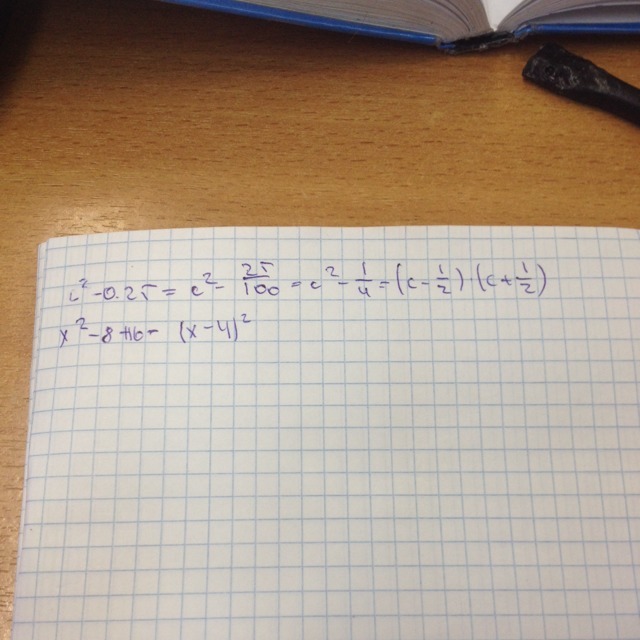 c² - 0.25 = c² - 25/100 = c² - 1/4 = (c - 1/2) (c + 1/2)
x² - 8 + 16 = (x - 4)²